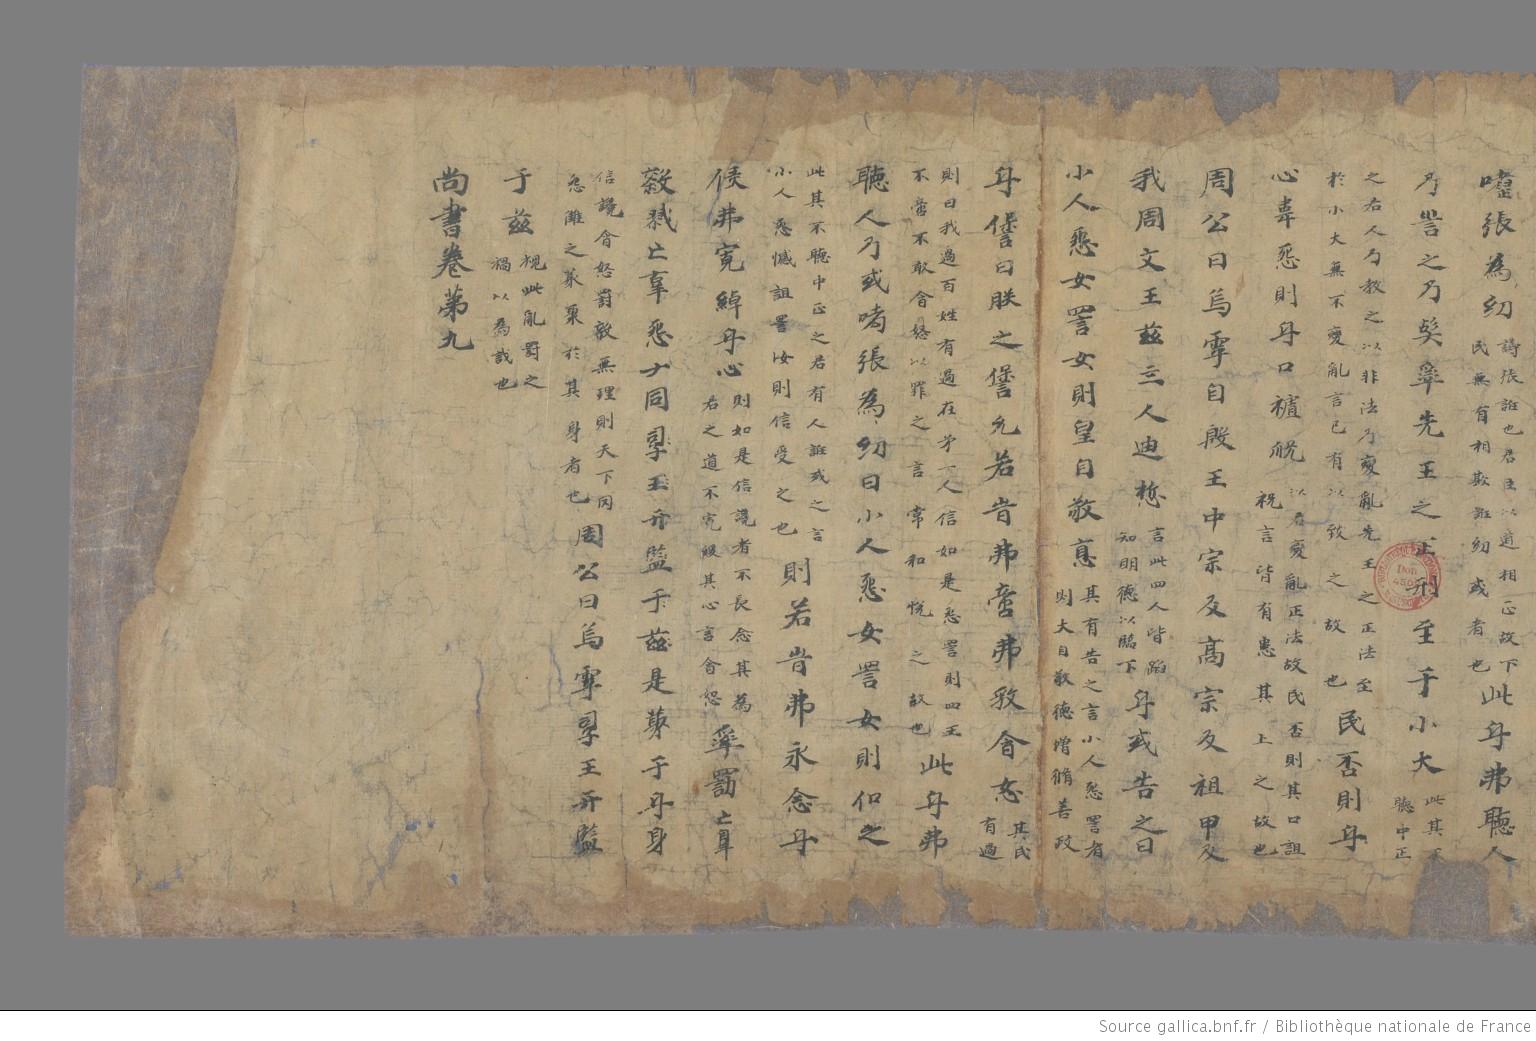 嚏張為幻譸張誑也君臣以道相正故下民無有相欺誑幻或者也此身弗聽人
乃訾之乃變辠先王之正刑至于小大此其不聽中正
之君人乃教之以非法乃變亂先王之正法至於小大無不變亂言已有以致之故也民否則身
心韋惌則身口禃祝以君變亂正法故民否則其口詛祝言皆有患其上之故也
周公曰烏虖自殷王中宗及高宗及祖甲及
我周文王茲三人迪悊言此四人皆蹈知明德以臨下身或告之曰
小人惌女詈女則皇自敬悳其有告之言小人惌詈者則大自敬德增脩善政
身諐曰朕之諐允若旹弗啻弗敢含怒其民有過
則曰我過百姓有過在予一人信如是惌詈則四王不啻不敢含怒以罪之言常和悅之故也此身弗
聽人乃或嚋張為幻曰小人惌女詈女則仰之
此其不聽中正之君有人誑或之言小人惌憾詛詈汝則信受之也則若旹弗永念身
侯弗寛綽身心則如是信讒者不長念其為君之道不寛緩其心言含怒辠罰亡辠
敍煞亡辜惌ナ同孠王亓監于茲是藂于身身
信讒含怒罰敍無理則天下同惌雠之藂聚於其身者也周公曰烏虖孠王亓監
于茲視此亂罰之禍以為戒也
尚書卷苐九
Don 4502
Source gallica.bnf.fr / Bibliothèque nationale de France